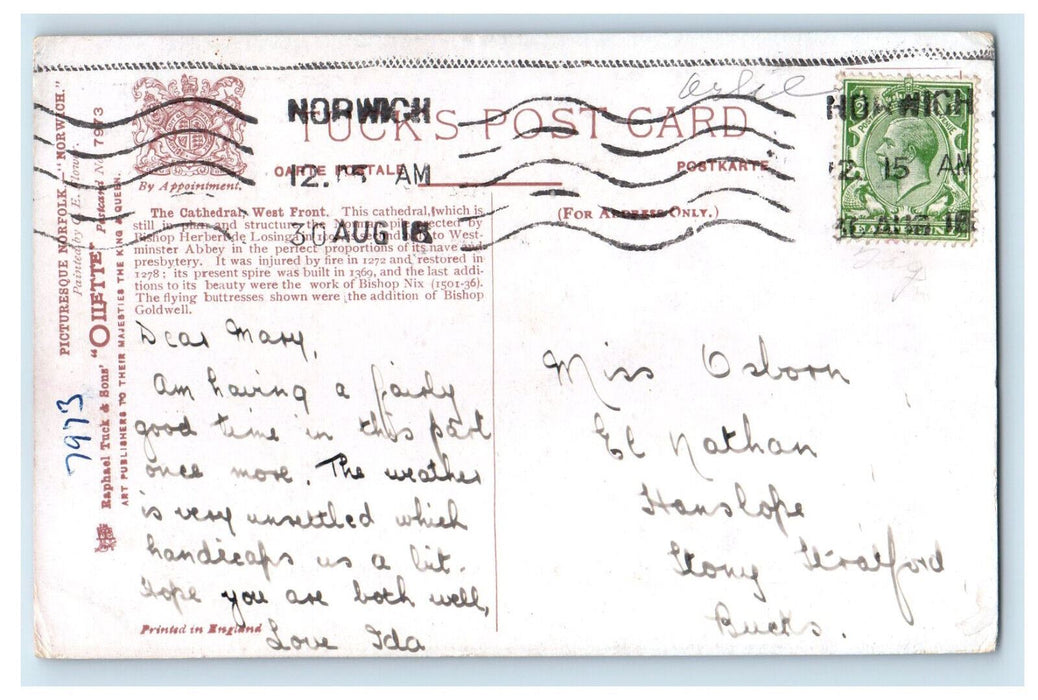 PICTURESQUE NORFOLK.—"NORWICH."
Painted by C. E. Flower.
Raphael Tuck & Sons' "OILETTE" Postcard No. 7973
ART PUBLISHERS TO THEIR MAJESTIES THE KING & QUEEN.
7973
By Appointment.
TUCK'S POST CARD
CARTE POSTALE
POSTKARTE
(FOR ADDRESS ONLY.)
NORWICH
12.15 AM
30 AUG 18
NORWICH
12.15 AM
30 AUG 18
The Cathedral, West Front. This cathedral, which is
still in plan and structure the Norman pile erected by
Bishop Herbert de Losinga, is to West-
minster Abbey in the perfect proportions of its nave and
presbytery. It was injured by fire in 1272 and restored in
1278; its present spire was built in 1369, and the last addi-
tions to its beauty were the work of Bishop Nix (1501-36).
The flying buttresses shown were the addition of Bishop
Goldwell.
Dear Mary,
Am having a fairly
good time in this part
once more. The weather
is very unsettled which
handicaps us a bit.
Hope you are both well,
Love Ida
Printed in England
Miss Osborn
El Nathan
Hanslope
Stony Stratford
Bucks.